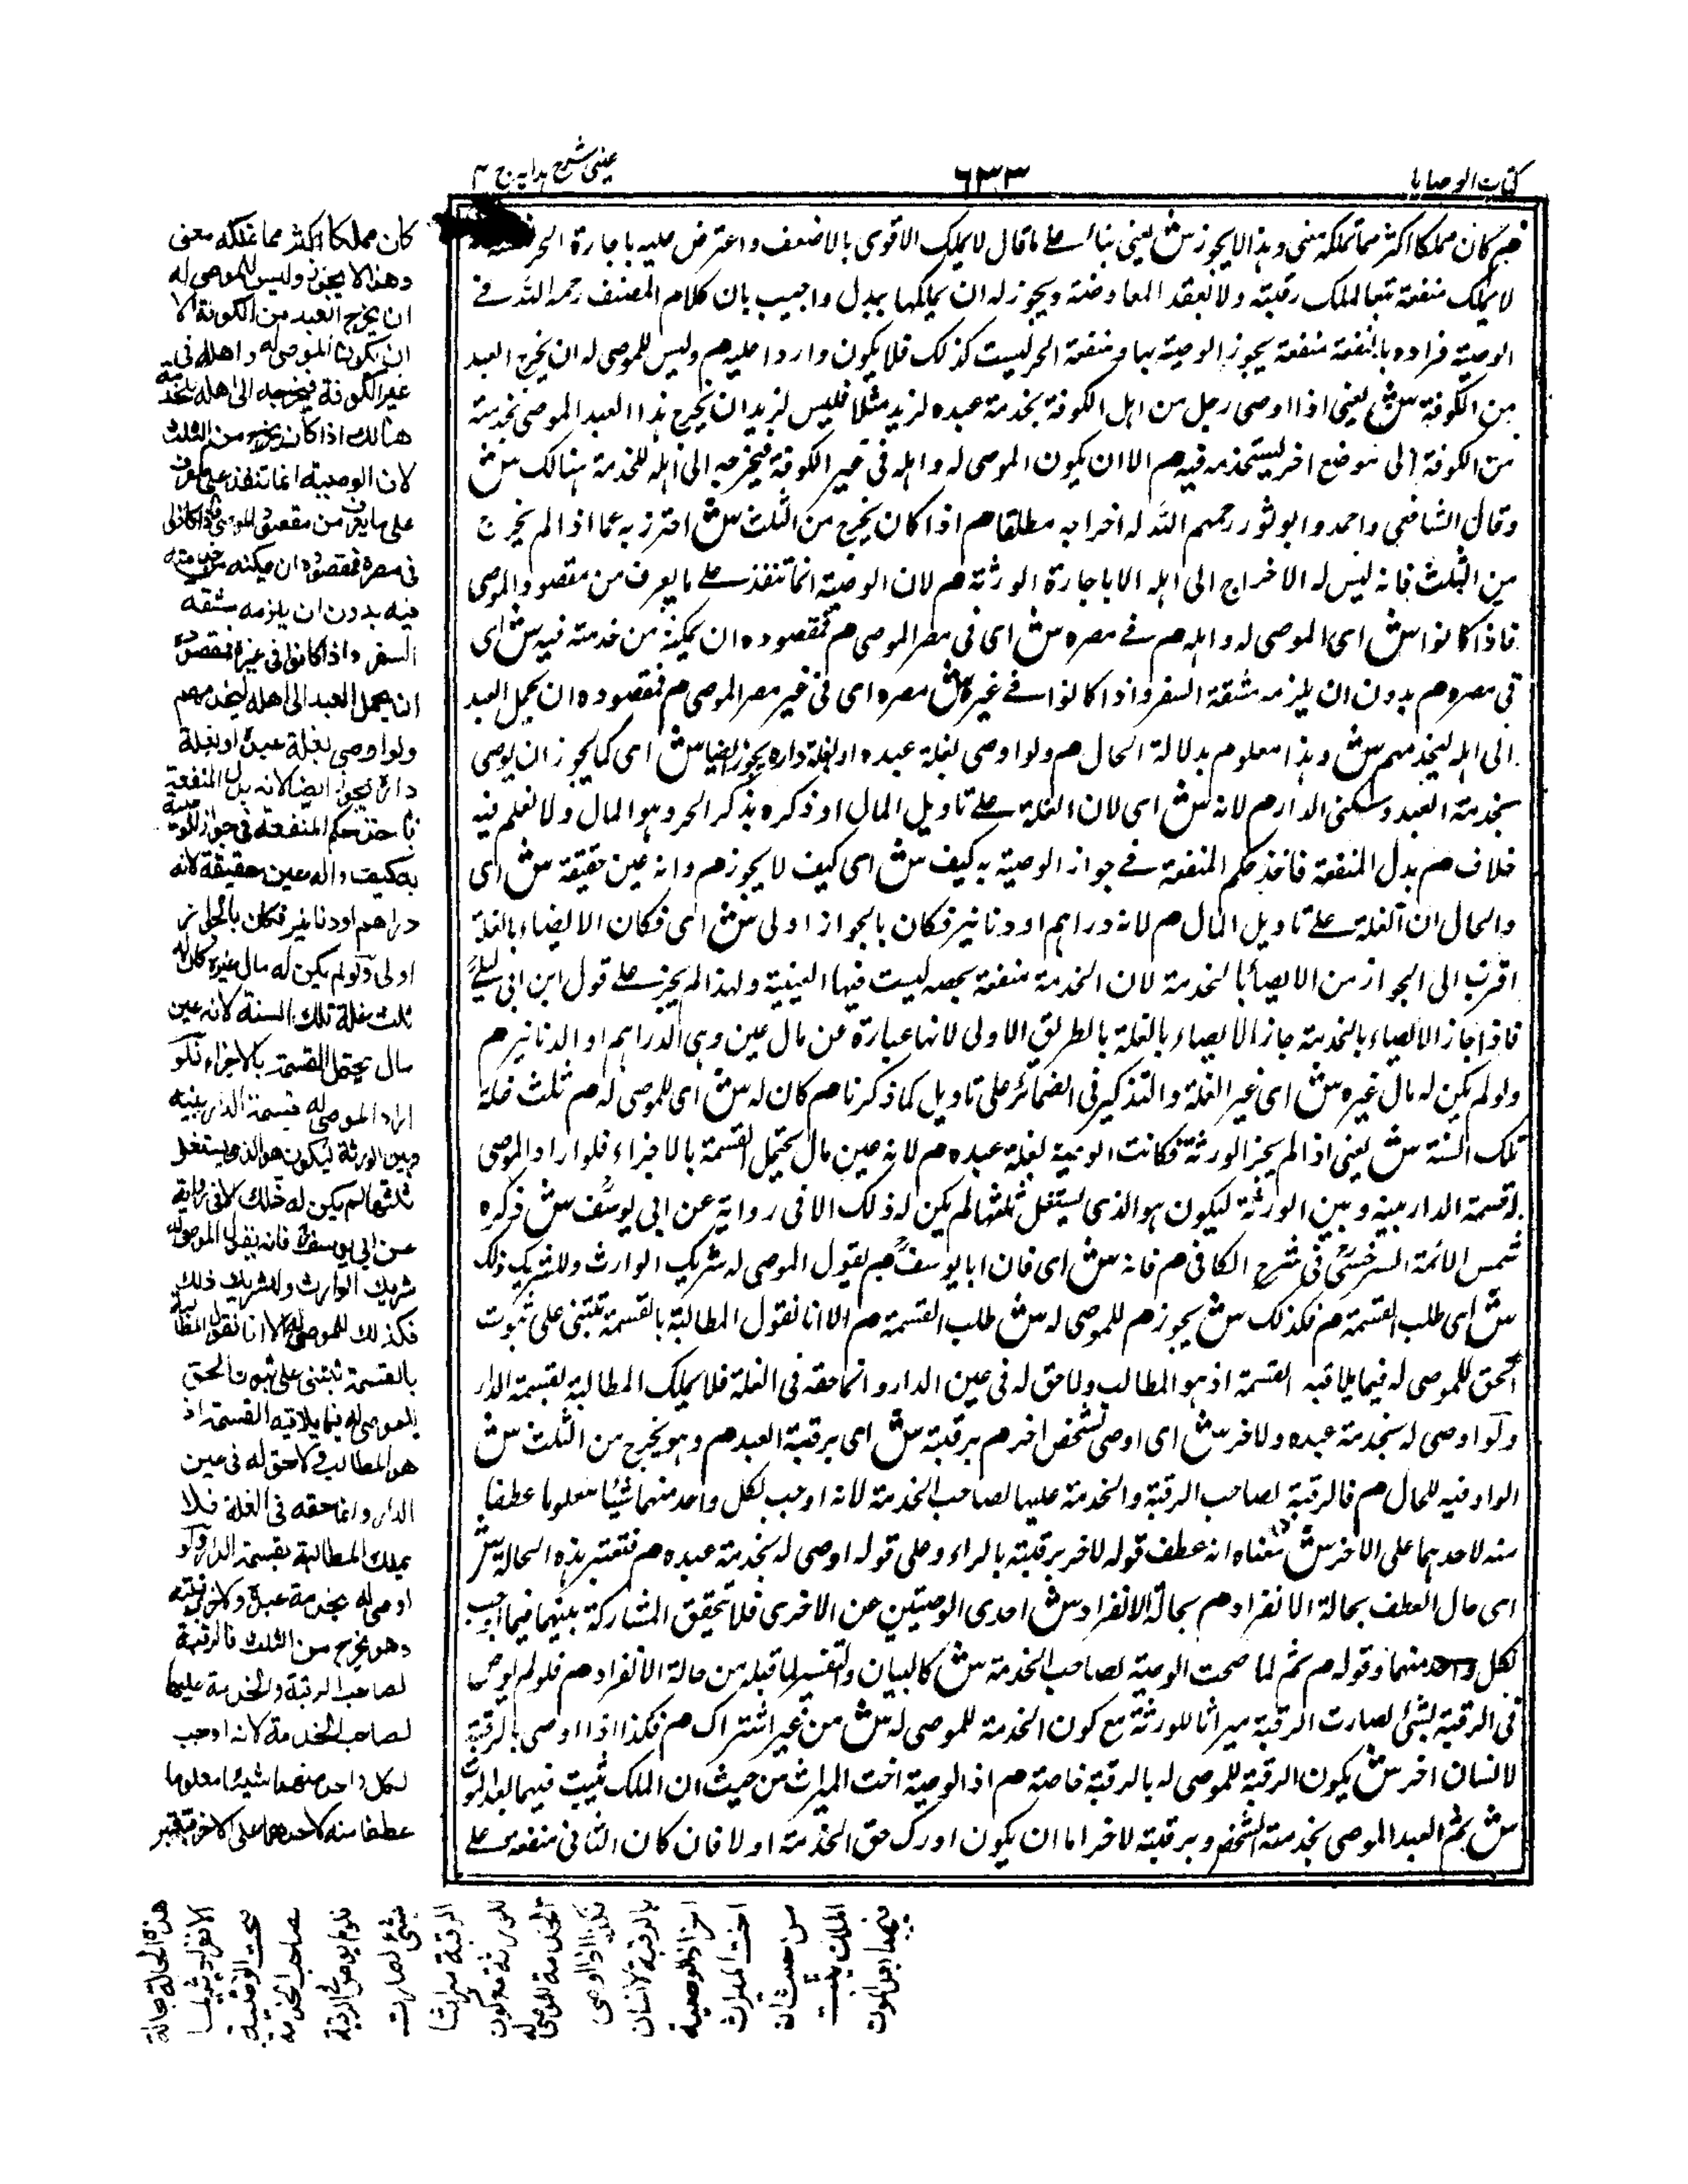 كتاب الوصايا
٦٣٣
عينى شرح هدايه ج ٤
هم كان مملكا اكثر مما تملكه معنى وهذا لا يجوز ش يعنى بناء على ما قال لا يملك الاقوى بالاضعف واعترض عليه باجارة الحر
لا يملك منفعة تبعا لملك رقبته ولا بعقد المعاوضة ويجوز له ان يملكها ببدل واجيب بان كلام المصنف رحمه الله فى
الوصية فراده بالمنفعة منفعة يجوز الوصية بها ومنفعة الحر ليست كذلك فلا يكون واردا عليه م وليس للموصى له ان يخرج العبد
من الكوفة ش يعنى اذا اوصى رجل من اهل الكوفة بخدمة عبده لزيد مثلا فليس لزيد ان يخرج هذا العبد الموصى بخدمته
من الكوفة الى موضع اخر ليستخدمه فيه م الا ان يكون الموصى له واهله فى غير الكوفة فيخرجه الى اهله للخدمة هنالك ش
وقال الشافعى واحمد وابو ثور رحمهم الله له اخراجه مطلقا م اذا كان يخرج من الثلث ش احترز به عما اذا لم يخرج
من الثلث فانه ليس له الاخراج الى اهله الا باجارة الورثة م لان الوصية انما تنفذ على ما يعرف من مقصود الموصى
فاذا كانوا ش اى الموصى له واهله م فى مصره ش اى فى مصر الموصى م فمقصوده ان يمكنه من خدمته فيه ش اى
فى مصره م بدون ان يلزمه مشقة السفر واذا كانوا فى غيره ش مصره اى فى غير مصر الموصى م فمقصوده ان يحمل العبد
الى اهله ليخدمهم ش وهذا معلوم بدلالة الحال م ولو اوصى بغلة عبده او بغلة داره يجوز ايضا ش اى كما يجوز ان يوصى
بخدمة العبد وسكنى الدار م لانه ش اى لان الغلة على تاويل المال او ذكره بذكر الحر وهو المال ولا نعلم فيه
خلاف م بدل المنفعة فاخذ حكم المنفعة فى جواز الوصية به كيف ش اى كيف لا يجوز م وانه عين حقيقة ش اى
والحال ان الغلة على تاويل المال م لانه دراهم او دنانير فكان بالجواز اولى ش اى فكان الايصاء بالغلة
اقرب الى الجواز من الايصاء بالخدمة لان الخدمة منفعة محصه ليست فيها العينية ولهذا لم يجز على قول ابن ابى ليلى
فاذا جاز الايصاء بالخدمة جاز الايصاء بالغلة بالطريق الاولى لانها عبارة عن مال عين وهى الدراهم او الدنانير م
ولو لم يكن له مال غيره ش اى غير الغلة والتذكير فى الضمائر على تاويل كما ذكرنا م كان له ش اى للموصى له م ثلث غلة
تلك السنة ش يعنى اذا لم يجز الورثة فكانت الوصية بغلة عبده م لانه عين مال يحتمل القسمة بالاجزاء فلو اراد الموصى
له قسمة الدار بينه وبين الورثة ليكون هو الذى يستغل ثلثها لم يكن له ذلك الا فى رواية عن ابى يوسف ش ذكره
شمس الائمة السرخسى فى شرح الكافى م فانه ش اى فان ابا يوسف م يقول الموصى له شريك الوارث وللشريك ذلك
ش اى طلب القسمة م فكذلك ش يجوز م للموصى له ش طلب القسمة م الا انا نقول المطالبة بالقسمة تبتنى على ثبوت
الحق للموصى له فيما يلاقيه القسمة اذ هو المطالب ولا حق له فى عين الدار وانما حقه فى الغلة فلا يملك المطالبة بقسمة الدار
ولو اوصى له بخدمة عبده ولاخر ش اى اوصى لشخص اخر م برقبته ش اى برقبة العبد م وهو يخرج من الثلث ش
الواو فيه للحال م فالرقبة لصاحب الرقبة والخدمة عليها لصاحب الخدمة لانه اوجب لكل واحد منهما شيئا معلوما عطفا
منه لاحدهما على الاخر ش معناه انه عطف قوله لاخر برقبته بالواو على قوله اوصى له بخدمة عبده م فتعتبر هذه الحالة ش
اى حال العطف بحالة الانفراد م بحالة الانفراد ش احدى الوصيتين عن الاخرى فلا تحقق المشاركة بينهما فيما اوجب
لكل واحد منهما وقوله م ثم لما صحت الوصية لصاحب الخدمة ش كالبيان والتفسير لما قبله من حالة الانفراد م فلو لم يوص
فى الرقبة بشئ لصارت الرقبة ميراثا للورثة مع كون الخدمة للموصى له ش من غير اشتراك م فكذا اذا اوصى بالرقبة
لانسان اخر ش يكون الرقبة للموصى له بالرقبة خاصة م اذ الوصية اخت الميراث من حيث ان الملك يثبت فيهما بعد الموت
ش ثم العبد الموصى بخدمته لشخص وبرقبته لاخر اما ان يكون ادرك حق الخدمة او لا فان كان الثانى منفعته على
كان مملكا اكثر مما تملكه معنى
وهذا لا يجوز وليس للموصى له
ان يخرج العبد من الكوفة الا
ان يكون الموصى له واهله فى
غير الكوفة فيخرجه الى اهله للخدمة
هنالك اذا كان يخرج من الثلث
لان الوصية انما تنفذ على
على ما يعرف من مقصود الموصى فاذا كانوا
فى مصره فمقصوده ان يمكنه من خدمته
فيه بدون ان يلزمه مشقة
السفر واذا كانوا فى غيره فمقصوده
ان يحمل العبد الى اهله ليخدمهم
ولو اوصى بغلة عبده او بغلة
داره يجوز ايضا لانه بدل المنفعة
فاخذ حكم المنفعة فى جواز الوصية
به كيف وانه عين حقيقة لانه
دراهم او دنانير فكان بالجواز
اولى ولو لم يكن له مال غيره كان له
ثلث غلة تلك السنة لانه عين
مال يحتمل القسمة بالاجزاء فلو
اراد الموصى له قسمة الدار بينه
وبين الورثة ليكون هو الذى يستغل
ثلثها لم يكن له ذلك الا فى رواية
عن ابى يوسف فانه يقول الموصى له
شريك الوارث وللشريك ذلك
فكذلك للموصى له الا انا نقول المطالبة
بالقسمة تبتنى على ثبوت الحق
للموصى له فيما يلاقيه القسمة اذ
هو المطالب ولا حق له فى عين
الدار وانما حقه فى الغلة فلا
يملك المطالبة بقسمة الدار ولو
اوصى له بخدمة عبده ولاخر برقبته
وهو يخرج من الثلث فالرقبة
لصاحب الرقبة والخدمة عليها
لصاحب الخدمة لانه اوجب
لكل واحد منهما شيئا معلوما
عطفا منه لاحدهما على الاخر فتعتبر
هذه الحالة بحالة
الانفراد ثم لما
صحت الوصية
لصاحب الخدمة
فلو لم يوص فى الرقبة
بشئ لصارت
الرقبة ميراثا
للورثة مع كون
الخدمة للموصى له
فكذا اذا اوصى
بالرقبة لانسان
اخر اذ الوصية
اخت الميراث
من حيث ان
الملك يثبت
فيهما بعد الموت